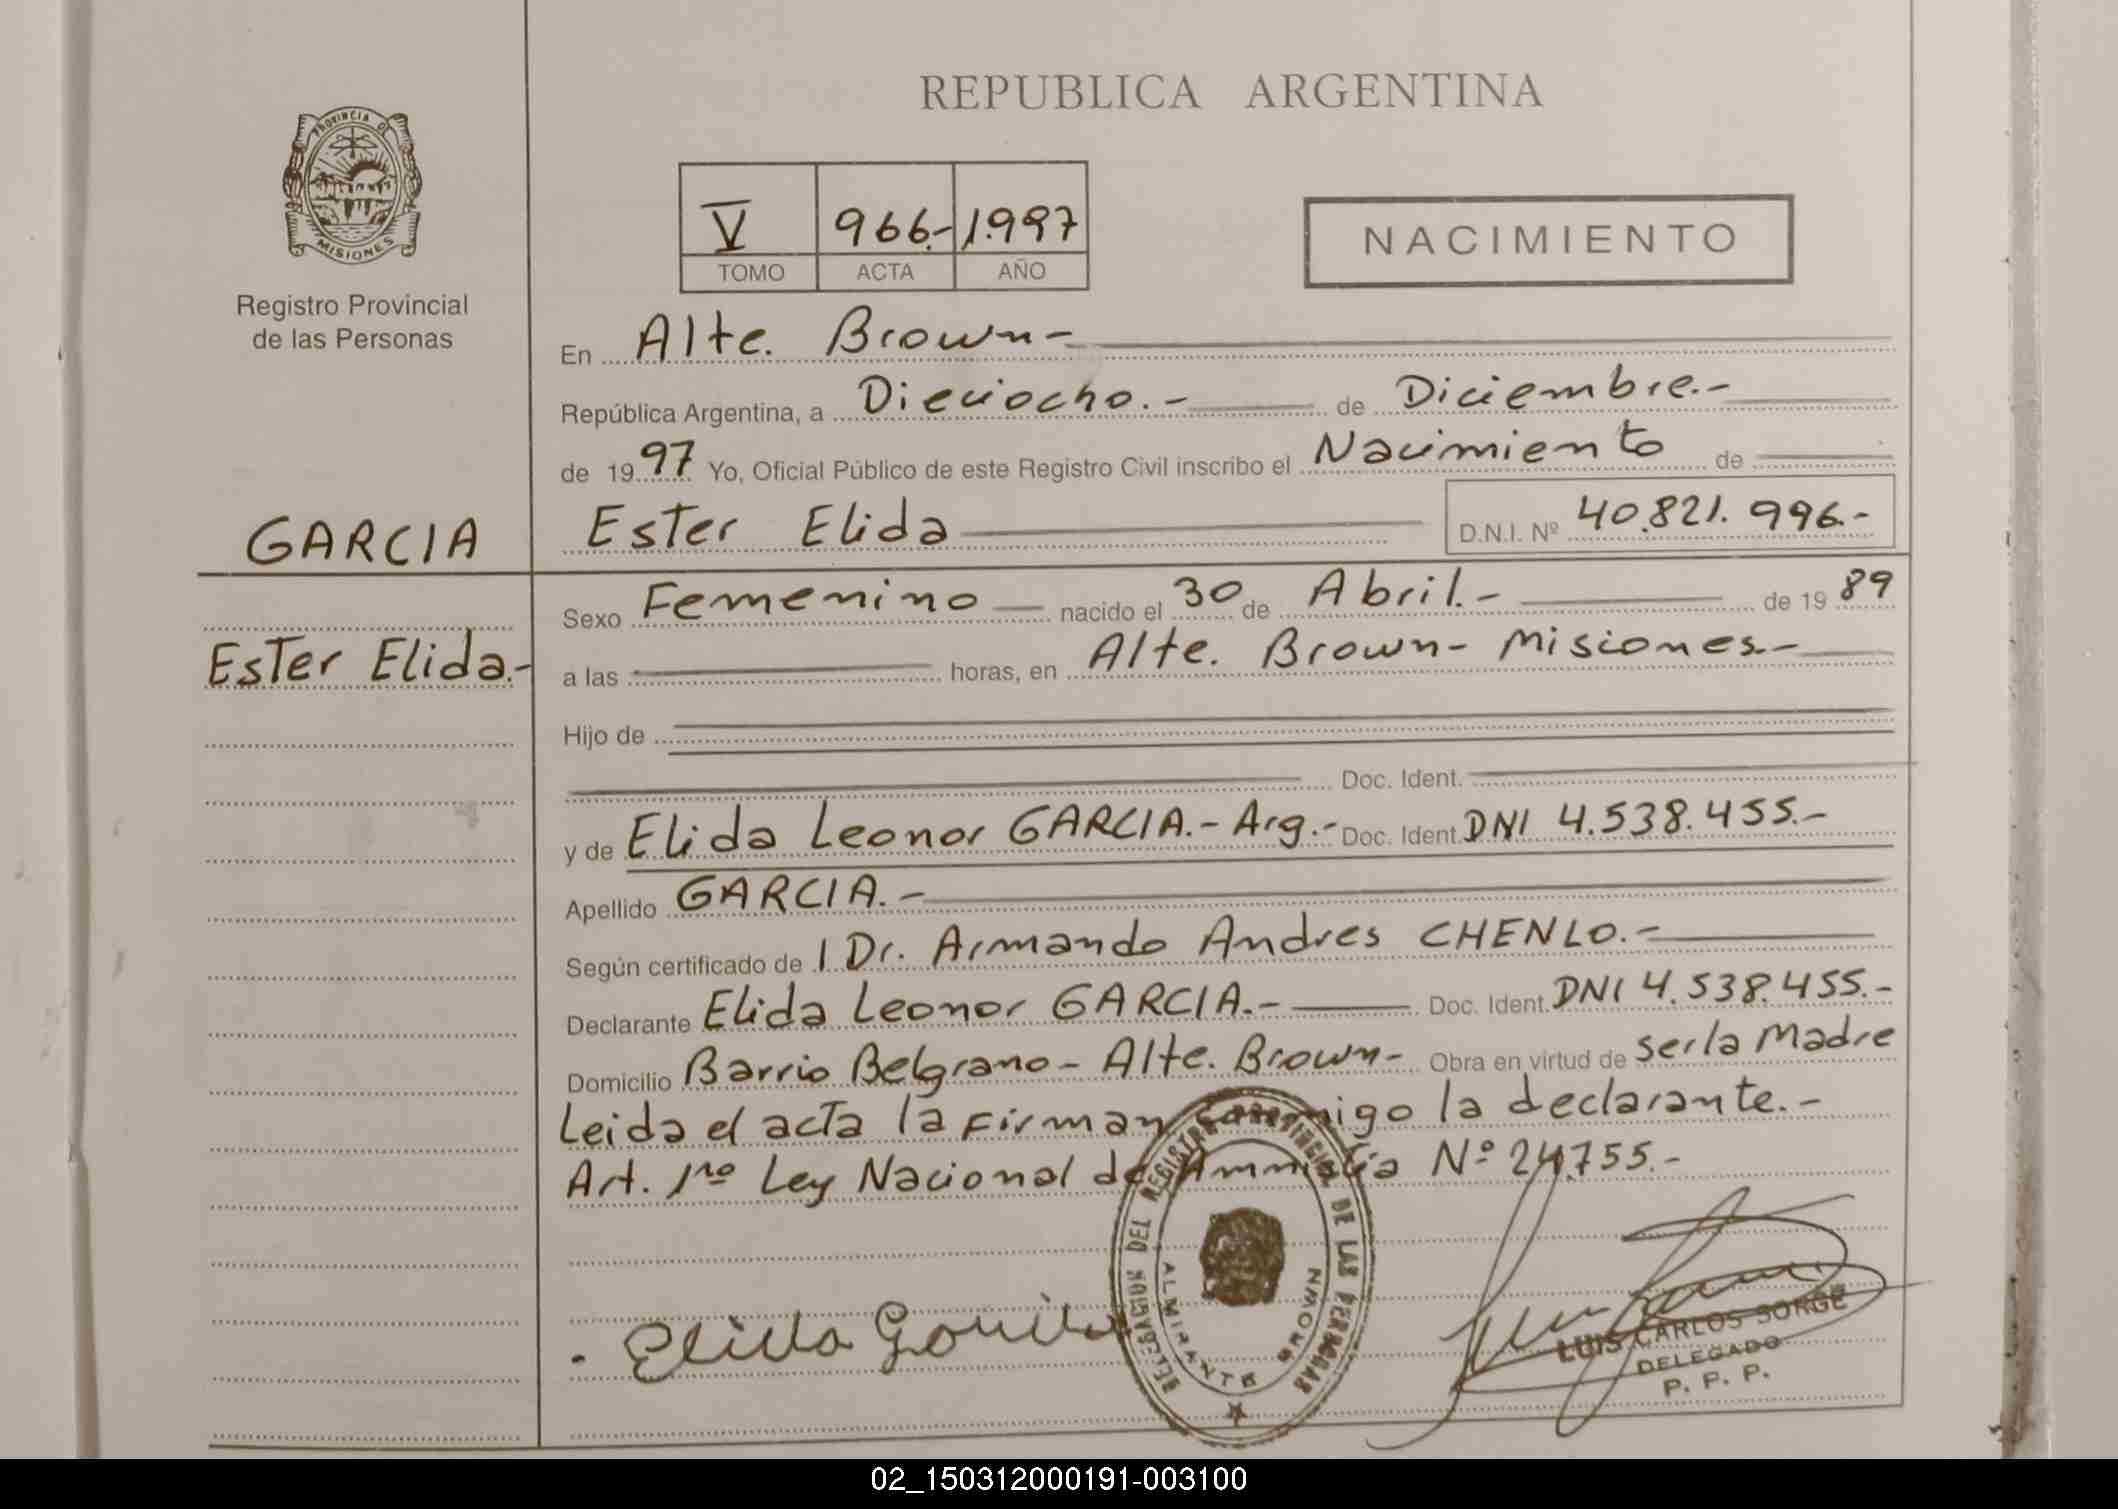 REPUBLICA ARGENTINA
PROVINCIA DE MISIONES
Registro Provincial
de las Personas
V 966.- 1.997
TOMO ACTA AÑO
NACIMIENTO
En Alte. Brown-
República Argentina, a Dieciocho.- de Diciembre.-
de 1997 Yo, Oficial Público de este Registro Civil inscribo el Nacimiento de
GARCIA
Ester Elida D.N.I. Nº 40.821.996.-
Ester Elida.-
Sexo Femenino nacido el 30 de Abril.- de 1989
a las horas, en Alte. Brown- Misiones.-
Hijo de
Doc. Ident.
y de Elida Leonor GARCIA.- Arg.- Doc. Ident. DNI 4.538.455.-
Apellido GARCIA.-
Según certificado de Dr. Armando Andres CHENLO.-
Declarante Elida Leonor GARCIA.- Doc. Ident. DNI 4.538.455.-
Domicilio Barrio Belgrano- Alte. Brown- Obra en virtud de ser la Madre
Leida el acta la Firman conmigo la declarante.-
Art. 1ro Ley Nacional de Ammistia Nº 24.755.-
DELEGACION DEL REGISTRO PROVINCIAL DE LAS PERSONAS
ALMIRANTE BROWN
Elida
LUIS CARLOS SORGE
DELEGADO
02_150312000191-003100